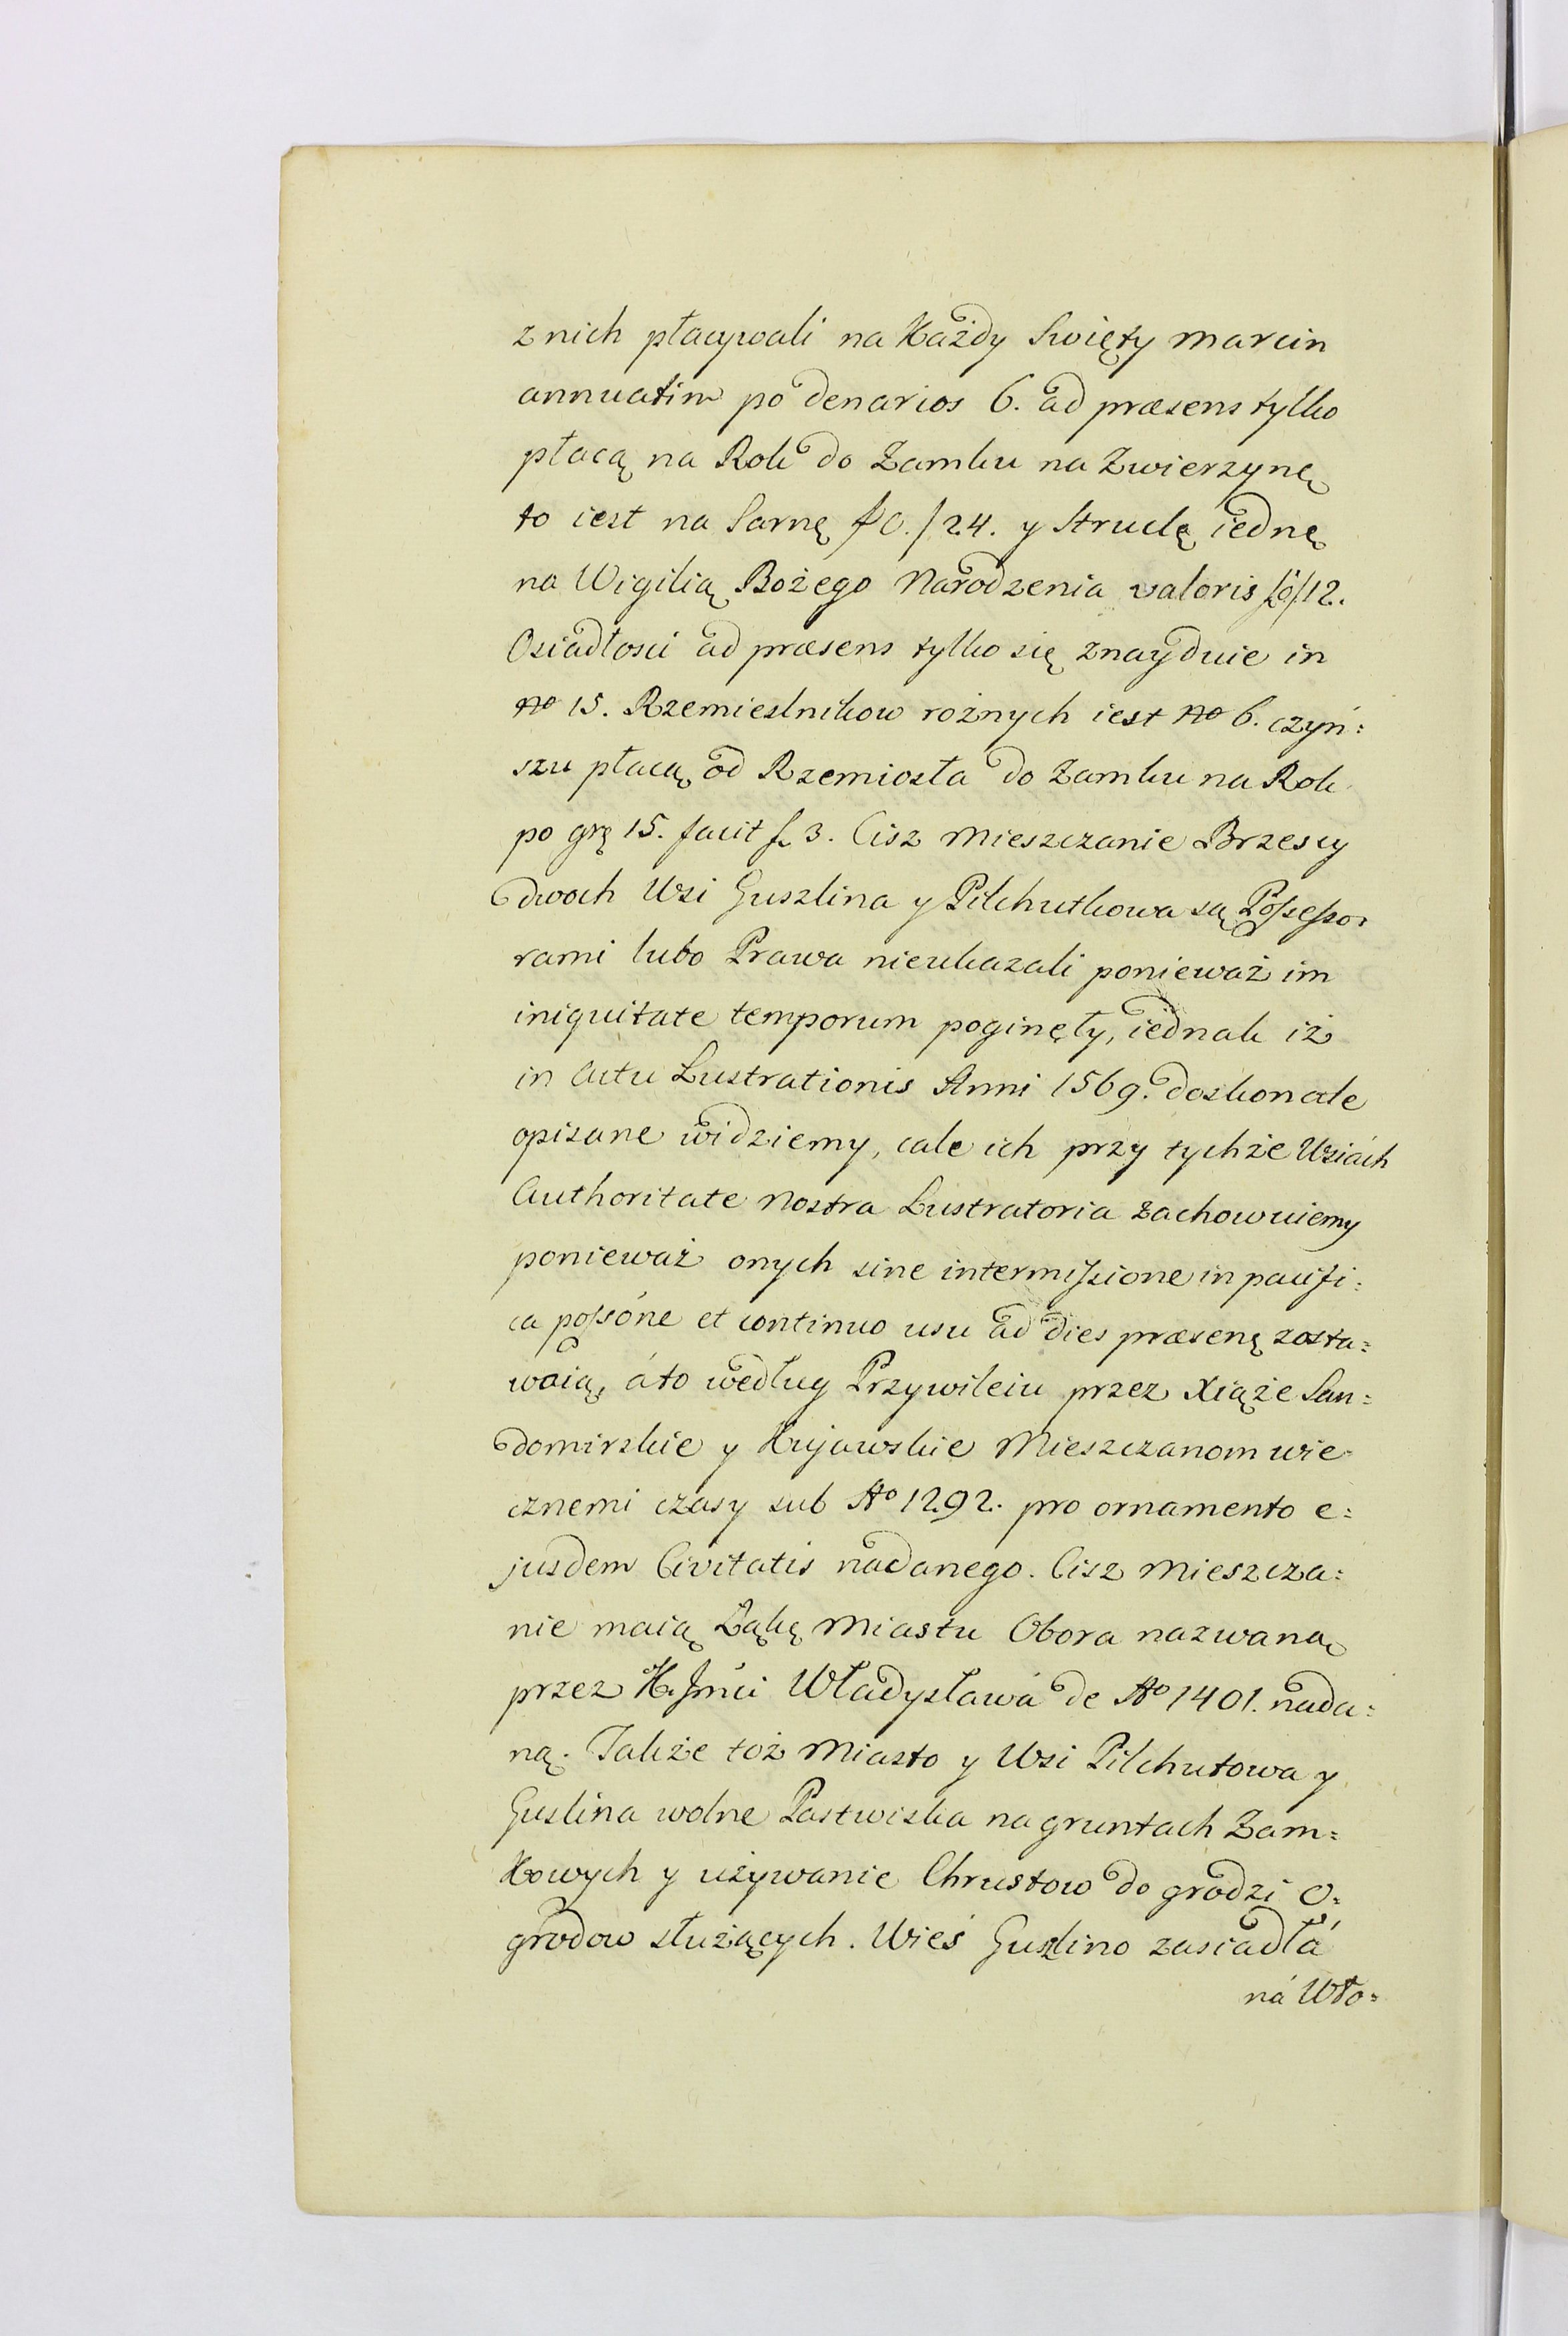 z nich płacywali na Każdy Swięty Marcin
annuatim po denarios 6. ad præsens tylko
płacą na Rok do Zamku na Zwierzynę
to iest na Sarnę f 0./24. y Struclę iednę
na Wigilią Bożego Narodzenia valoris f 0/12.
Osiadłosci ad præsens tylko się znayduie in
No 15. Rzemieslnikow rożnych iest No 6. czyń:
szu płacą od Rzemiosła do Zamku na Rok
po grę 15. facit f. 3. Cisz Mieszczanie Brzescy
dwoch Wsi Guszlina y Pilchutkowa są Possesso:
rami lubo Prawa nieukazali ponieważ im
iniquitate temporum poginęły, iednak iż
in Actu Lustrationis Anni 1569. doskonale
opisane widziemy, cale ich przy tychże Wsiách
Authoritate Nostra Lustratoria zachowuiemy
ponieważ onych sine intermissione in pacifi:
ca possóne et continuo usu ad dies præsenę zosta:
waią, áto według Przywileiu przez Xiąże San:
domirskie y Kujawskie Mieszczanom wie
cznemi czasy sub Ao 1292. pro ornamento e:
jusdem Civitatis nadanego. Cisz Mieszcza:
nie maią Łąkę Miastu Obora nazwaną
przez K. Jmći Władysława de Ao 1401. nada:
ną. Także toż Miasto y Wsi Pilchutowa y
Guslina wolne Pastwiska na gruntach Zam:
Kowych y używanie Chrustow do grodzi O:
grodow służących. Wieś Guszlino zasiadłá
ná Wło: